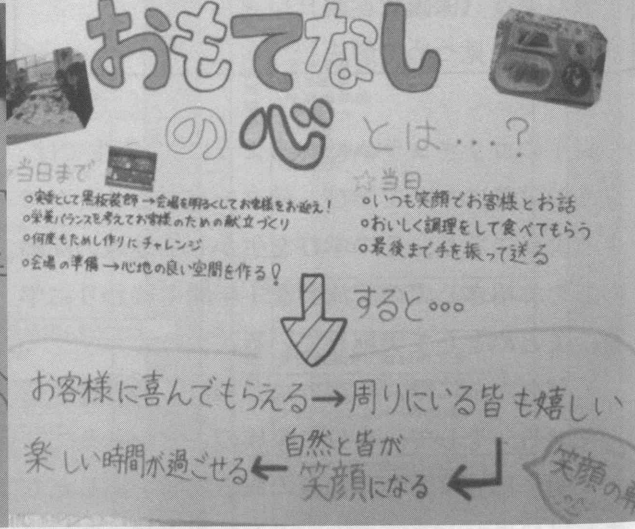 おもてなし
の心 とは…?
当日まで
○実香として黒板装飾→会場を明るくしてお客様をお迎え!
○栄養バランスを考えてお客様のための献立づくり
○何度もためし作りにチャレンジ
○会場の準備→心地の良い空間を作る!
☆当日
○いつも笑顔でお客様とお話
○おいしく調理をして食べてもらう
○最後まで手を振って送る
すると...
お客様に喜んでもらえる→周りにいる皆も嬉しい
自然と皆が
笑顔になる
楽しい時間が過ごせる←
笑顔の